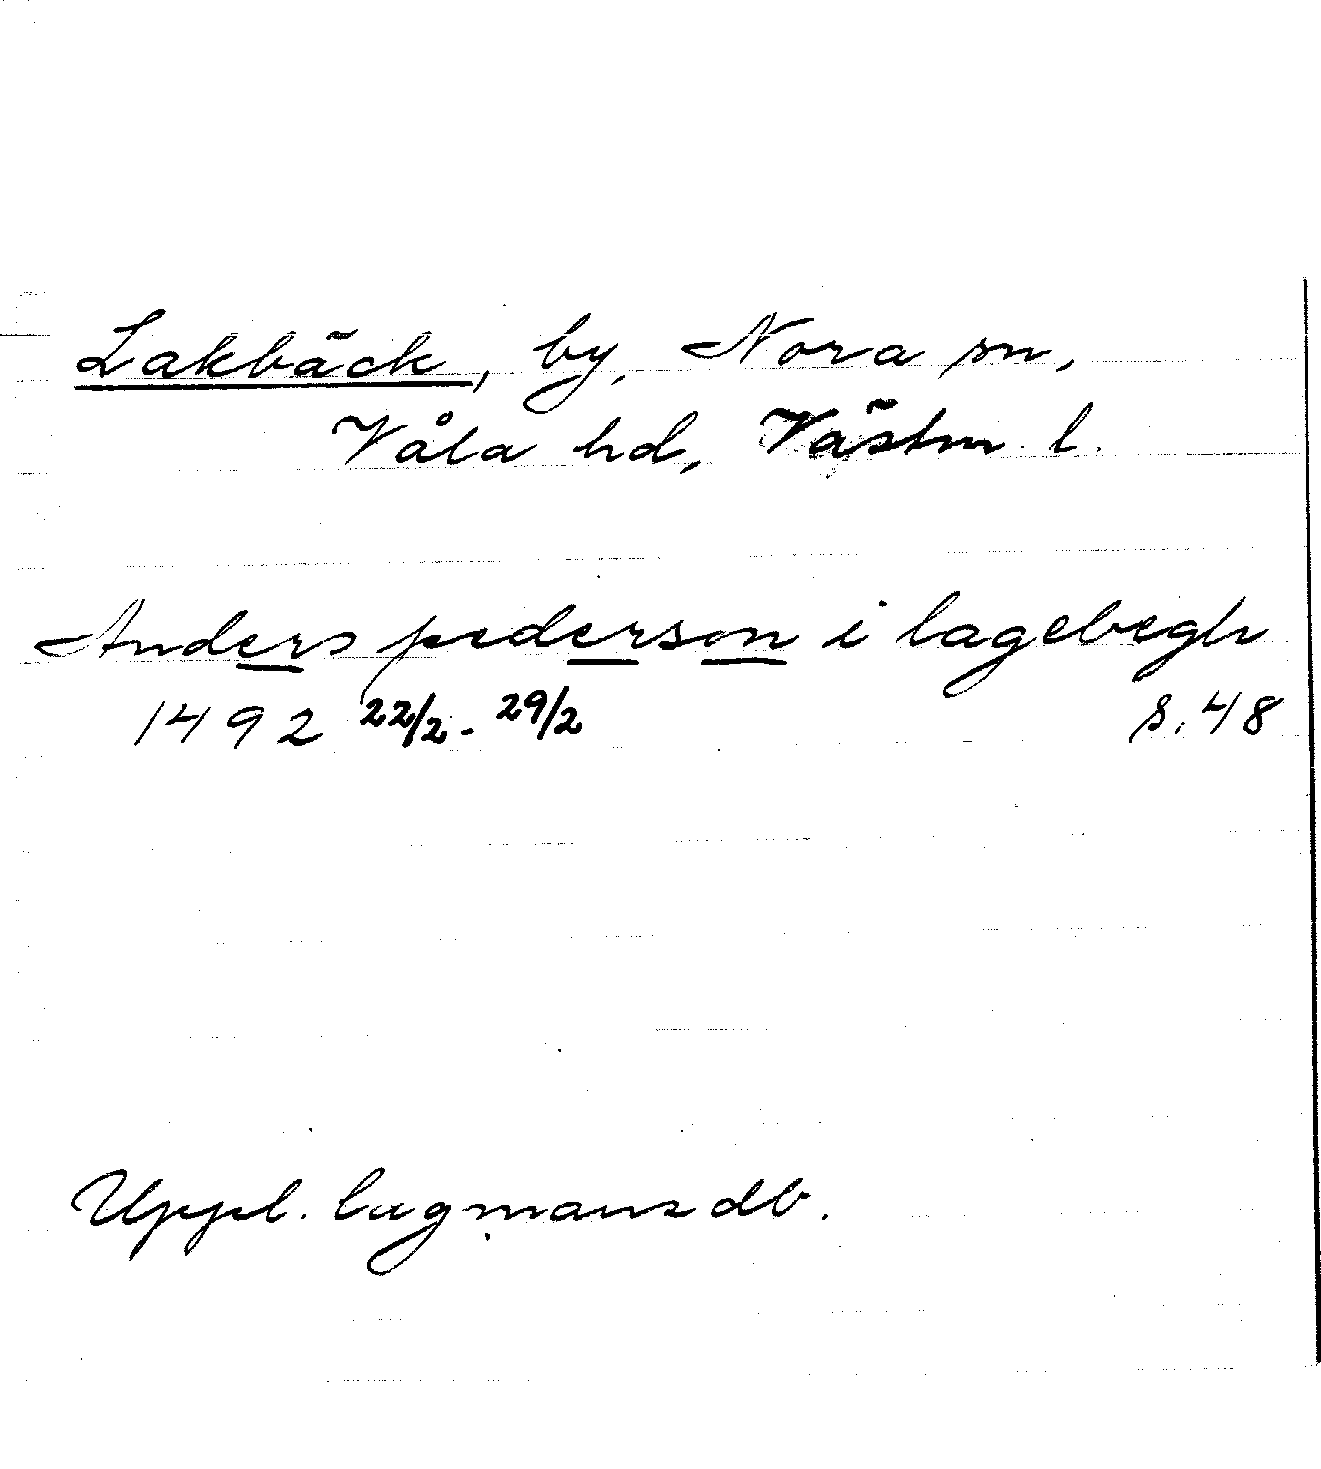 Lakbäck, by, Nora sn,
Våla hd, Västm l.
Anders pederson i lagebegh
1492 22/2 - 29/2 s. 48
Uppl. lagmansdb.